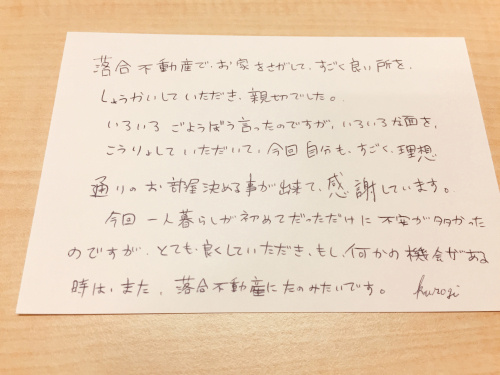 落合不動産で、お家をさがして、すごく良い所を、
しょうかいしていただき、親切でした。
いろいろごようぼう言ったのですが、いろいろな面を、
こうりょしていただいて、今回自分も、すごく、理想
通りのお部屋決める事が出来て、感謝しています。
今回一人暮らしが初めてだっただけに不安が多かった
のですが、とても良くしていただき、もし、何かの機会がある
時は、また、落合不動産にたのみたいです。 kurogi